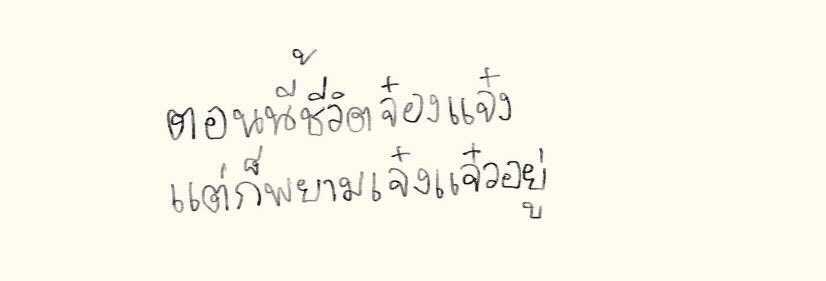 ตอนนี้ชีวิตจ๋องแจ๋ง
แต่ก็พยามเจ๋งแจ๋วอยู่